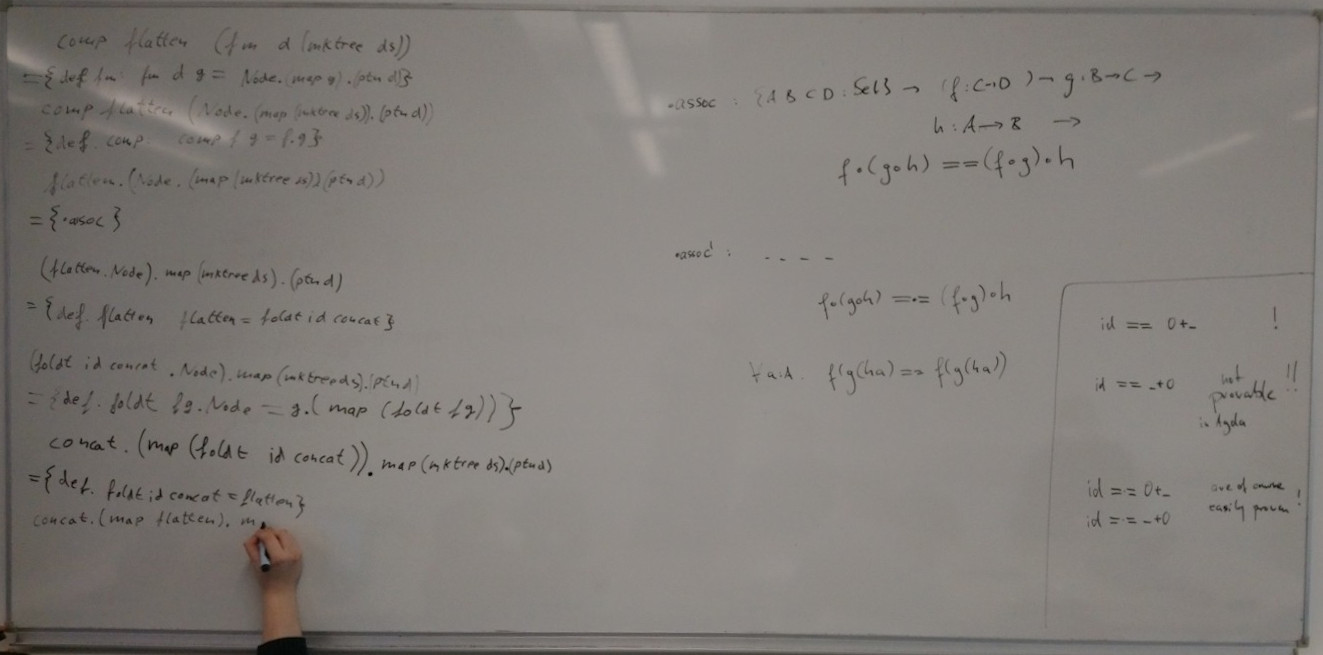 comp flatten (fm d (mktree ds))
= {def fm: fm d g = Node.(map g).(ptn d)}
comp flatten (Node.(map (mktree ds)).(ptn d))
= {def. comp: comp f g = f.g}
flatten.(Node.(map (mktree ds)).(ptn d))
= {.assoc}
(flatten.Node).map(mktree ds).(ptn d)
= {def. flatten flatten = foldt id concat}
(foldt id concat . Node).map(mktree ds).(ptn d)
= {def. foldt f g.Node = g.(map (foldt f g))}
concat.(map (foldt id concat)).map(mktree ds).(ptn d)
= {def. foldt id concat = flatten}
concat.(map flatten). m
.assoc : {A B C D : Set} → (f:C→D) → g:B→C →
h:A→B →
f∘(g∘h) == (f∘g)∘h
.assoc' : - - - -
f∘(g∘h) =·= (f∘g)∘h
∀a:A. f(g(h a)) == f(g(h a))
id == 0+_ !
id == _+0 not provable !!
in Agda
id =·= 0+_ are of course
id =·= _+0 easily proven !